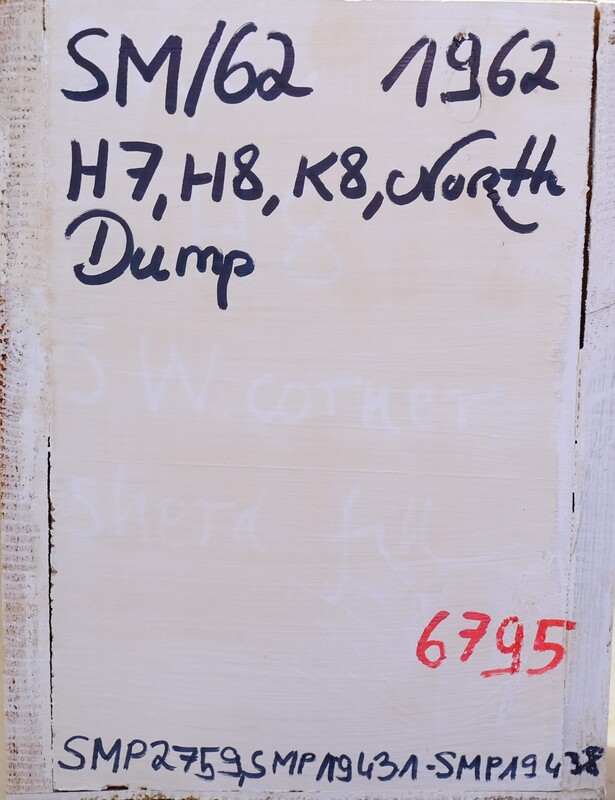 SM/62 1962
H7, H8, K8, North
Dump
H8
S W. corner
sherd fill
6795
SMP2759, SMP19431-SMP19438